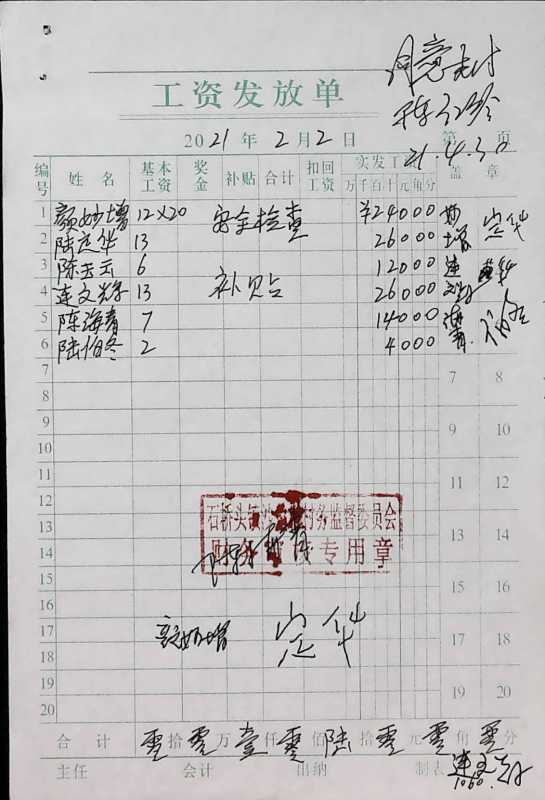 同意支付
21.4.30
工资发放单
2021年2月2日 第 页
编号 姓名 基本工资 奖金 补贴 合计 扣回工资 实发工资 盖章
万千百十元角分
1 颜妙增 12×20 安全检查 ¥24000 妙增 定华
2 陆定华 13 26000
3 陈玉云 6 12000
4 连文 13 补贴 26000
5 陈海青 7 14000 海青
6 陆伯冬 2 4000 伯冬
7 7 8
8
9 9 10
10
11 11 12
12
13 石桥头镇 村务监督委员会 13 14
14 财务 专用章
15 15 16
16
17 颜妙增 定华 17 18
18
19 19 20
20
合计 零拾零万壹仟零佰陆拾零元零角零分
主任 会计 出纳 制表 连文
1060.